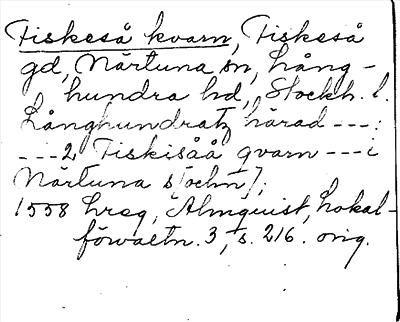 Fiskeså kvarn, Fiskeså
gd, Närtuna sn, Lång-
hundra hd, Stockh. l.
Långhundratz härad ---:
---2 Fiskisåå qvarn --- i
Närtuna s[ochn];
1558 hreg, Almquist, Lokal-
förvaltn. 3, s. 216. orig.